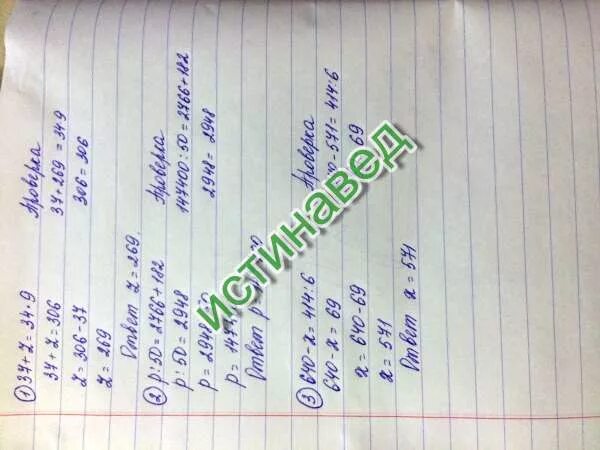 1) 37 + z = 34 · 9
37 + z = 306
z = 306 - 37
z = 269
Ответ z = 269.
Проверка
37 + 269 = 34·9
306 = 306
2) p : 50 = 2766 + 182
p : 50 = 2948
p = 2948
p =
Ответ p
Проверка
147400 : 50 = 2766 + 182
2948 = 2948
3) 640 - x = 414 : 6
640 - x = 69
x = 640 - 69
x = 571
Ответ x = 571
Проверка
- 571 = 414 : 6
69
истинавед